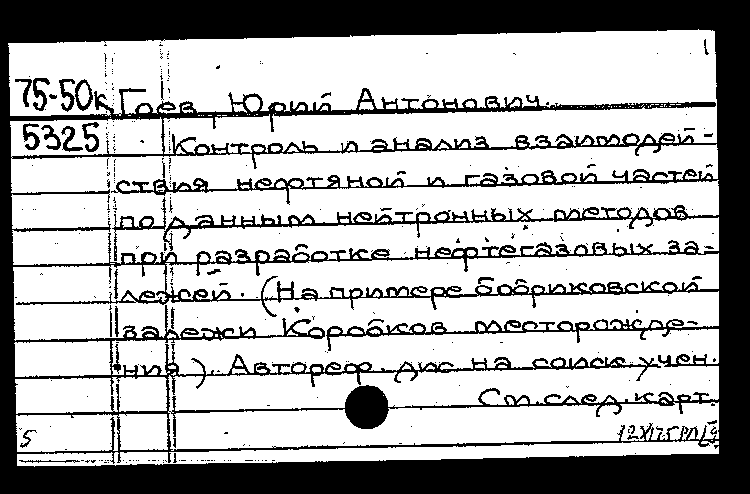 1
75-50к Гоев, Юрий Антонович.
5325 Контроль и анализ взаимодей-
ствия нефтяной и газовой частей
по данным нейтронных методов
при разработке нефтегазовых за-
лежей. (На примере бобриковской
залежи Коробков месторожде-
ния). Автореф. дис на соиск. учен.
См. след. карт.
5